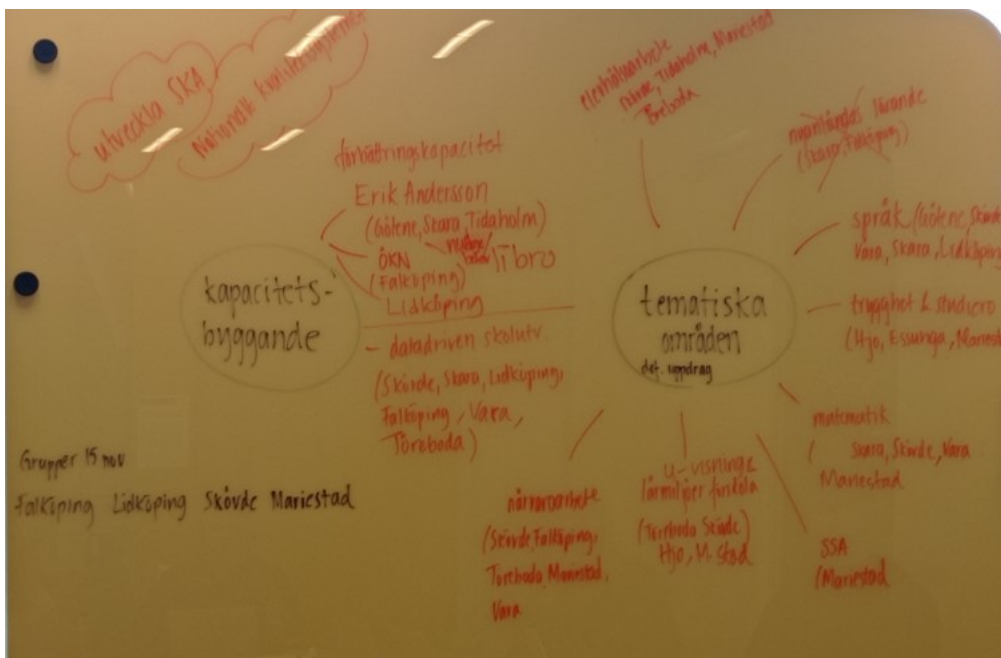 utveckla SKA
Nationellt kvalitetssystemet
förbättringskapacitet
Erik Andersson
(Götene, Skara, Tidaholm)
ÖKN
(Falköping)
Tibro
Lidköping
kapacitets-
byggande
- datadriven skolutv.
(Skövde, Skara, Lidköping,
Falköping, Vara,
Töreboda)
Grupper 15 nov
Falköping Lidköping Skövde Mariestad
elevhälsoarbete
Skövde, Tidaholm, Mariestad
Töreboda
nyanländas lärande
(Skara, Falköping)
språk (Götene, Skövde
Vara, Skara, Lidköping
trygghet & studiero
(Hjo, Essunga, Mariestad
tematiska
områden
def. uppdrag
matematik
Skara, Skövde, Vara
Mariestad
SSA
(Mariestad
lärmiljöer
(Töreboda Skövde)
Hjo, M. stad
närvaroarbete
(Skövde, Falköping,
Töreboda, Mariestad,
Vara